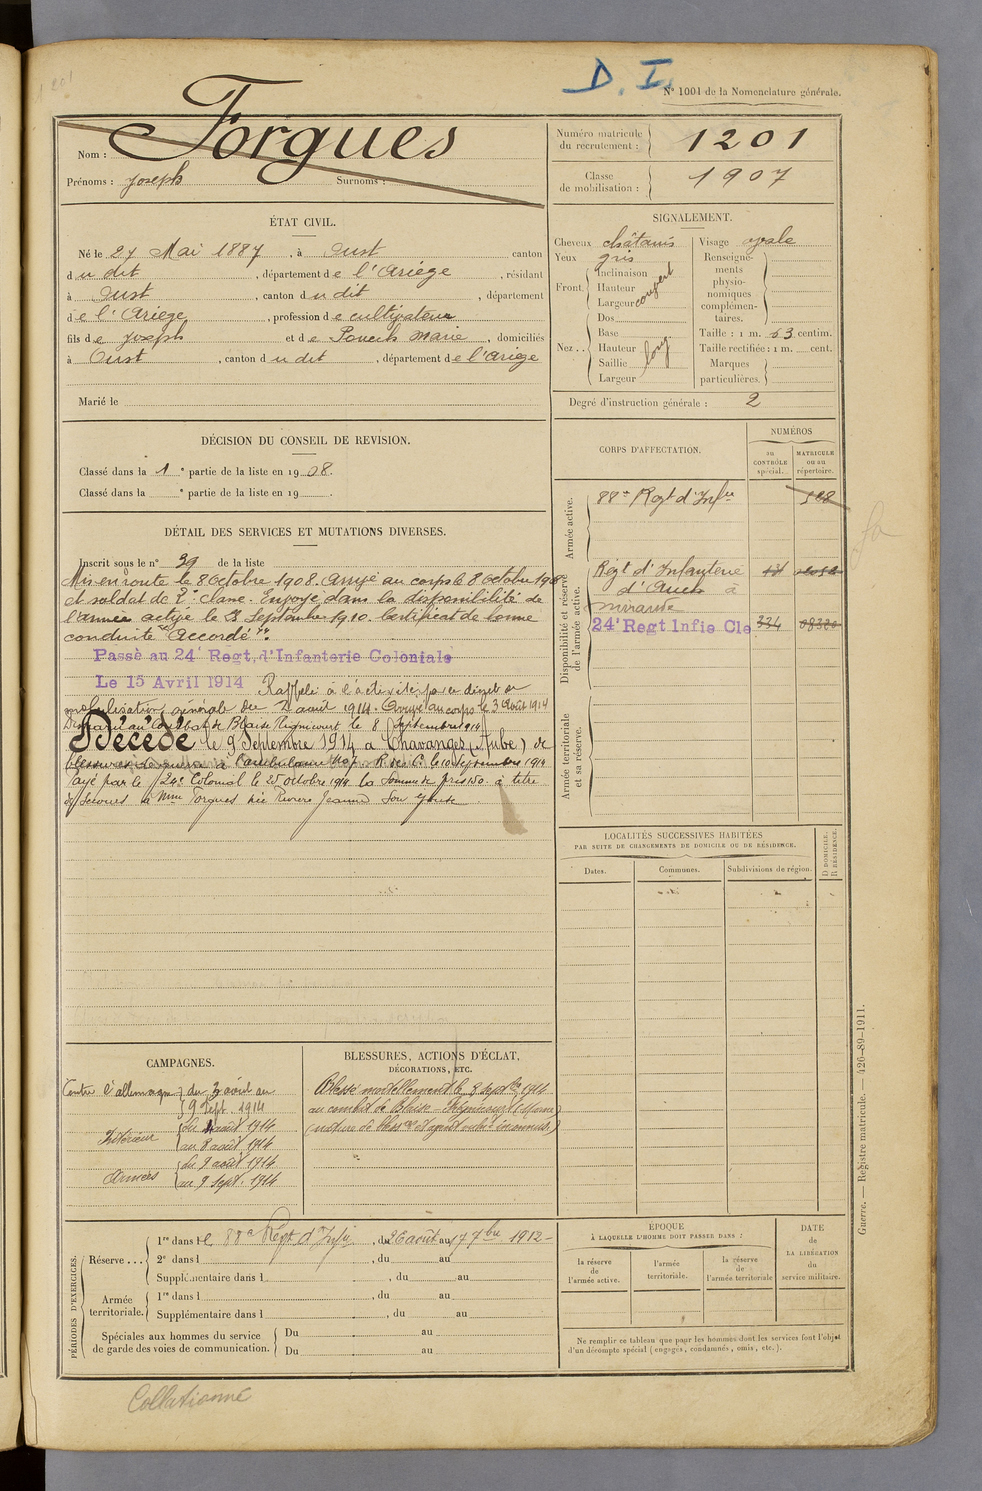 D. I.
N° 1001 de la Nomenclature générale.
Nom : Forgues
Prénoms : Joseph Surnoms :
Numéro matricule du recrutement : 1201
Classe de mobilisation : 1907
ÉTAT CIVIL.
Né le 24 Mai 1887, à Oust canton
du dit, département de l'Ariège, résidant
à Oust, canton du dit, département
de l'Ariège, profession de cultivateur
fils de Joseph et de Marie, domiciliés
à Oust, canton du dit, département de l'Ariège
Marié le
SIGNALEMENT.
Cheveux châtains
Yeux gris
Front. Inclinaison
Hauteur
Largeur
Nez.. Dos
Base
Hauteur long
Saillie
Largeur
Visage ovale
Renseignements physionomiques complémentaires.
Taille : 1 m. 63 centim.
Taille rectifiée : 1 m. cent.
Marques particulières.
Degré d'instruction générale : 2
DÉCISION DU CONSEIL DE REVISION.
Classé dans la 1e partie de la liste en 1908.
Classé dans la e partie de la liste en 19 .
DÉTAIL DES SERVICES ET MUTATIONS DIVERSES.
Inscrit sous le n° 39 de la liste
Mis en route le 8 octobre 1908. Arrivé au corps le 8 octobre 1908
et soldat de 2e classe. Envoyé dans la disponibilité de
l'armée active le Septembre 1910. Certificat de bonne
conduite "Accordé".
Passé au 24e Regt. d'Infanterie Coloniale
Le 15 Avril 1914 Rappelé à l'activité par décret de
mobilisation générale du 2 août 1914. Arrivé au corps le 3 août 1914
Disparu au combat de Blaise le 8 Septembre 1914
Décédé le 9 Septembre 1914 à Chavanges (Aube) de
blessures de guerre à l'ambulance N°7 le 10 septembre 1914
Payé par le 24e Colonial le 25 octobre 1914 la somme de 150 à titre
de secours à Mme Forgues née Jeanne son épouse
CORPS D'AFFECTATION.
NUMÉROS
au CONTRÔLE spécial.
MATRICULE ou au répertoire.
Armée active.
88e Regt d'Infie
Disponibilité et réserve de l'armée active.
Regt d'Infanterie
d'Auch à
Mirande
24e Regt Infie Cle 334
Armée territoriale et sa réserve.
LOCALITÉS SUCCESSIVES HABITÉES
PAR SUITE DE CHANGEMENTS DE DOMICILE OU DE RÉSIDENCE.
Dates. Communes. Subdivisions de région.
D DOMICILE.
R RÉSIDENCE.
CAMPAGNES.
Contre l'allemagne du 3 août au
9 Sept. 1914
Intérieur du août 1914
au 8 août 1914
Armées du 9 août 1914
au 9 Sept. 1914
BLESSURES, ACTIONS D'ÉCLAT,
DÉCORATIONS, ETC.
Blessé mortellement le 8 Septbre 1914
au combat de Blaise (Marne)
(nature de et agent inconnus)
PÉRIODES D'EXERCICES.
Réserve ... 1re dans le 88e Regt d'Infie, du 26 août au 17 7bre 1912
2e dans l , du au
Supplémentaire dans l , du au
Armée territoriale. 1re dans l , du au
Supplémentaire dans l , du au
Spéciales aux hommes du service de garde des voies de communication. Du au
Du au
ÉPOQUE
À LAQUELLE L'HOMME DOIT PASSER DANS :
la réserve de l'armée active.
l'armée territoriale.
la réserve de l'armée territoriale
DATE de LA LIBÉRATION du service militaire.
Ne remplir ce tableau que pour les hommes dont les services font l'objet
d'un décompte spécial (engagés, condamnés, omis, etc.).
Guerre. — Registre matricule. — 426-89-1911.
Collationné